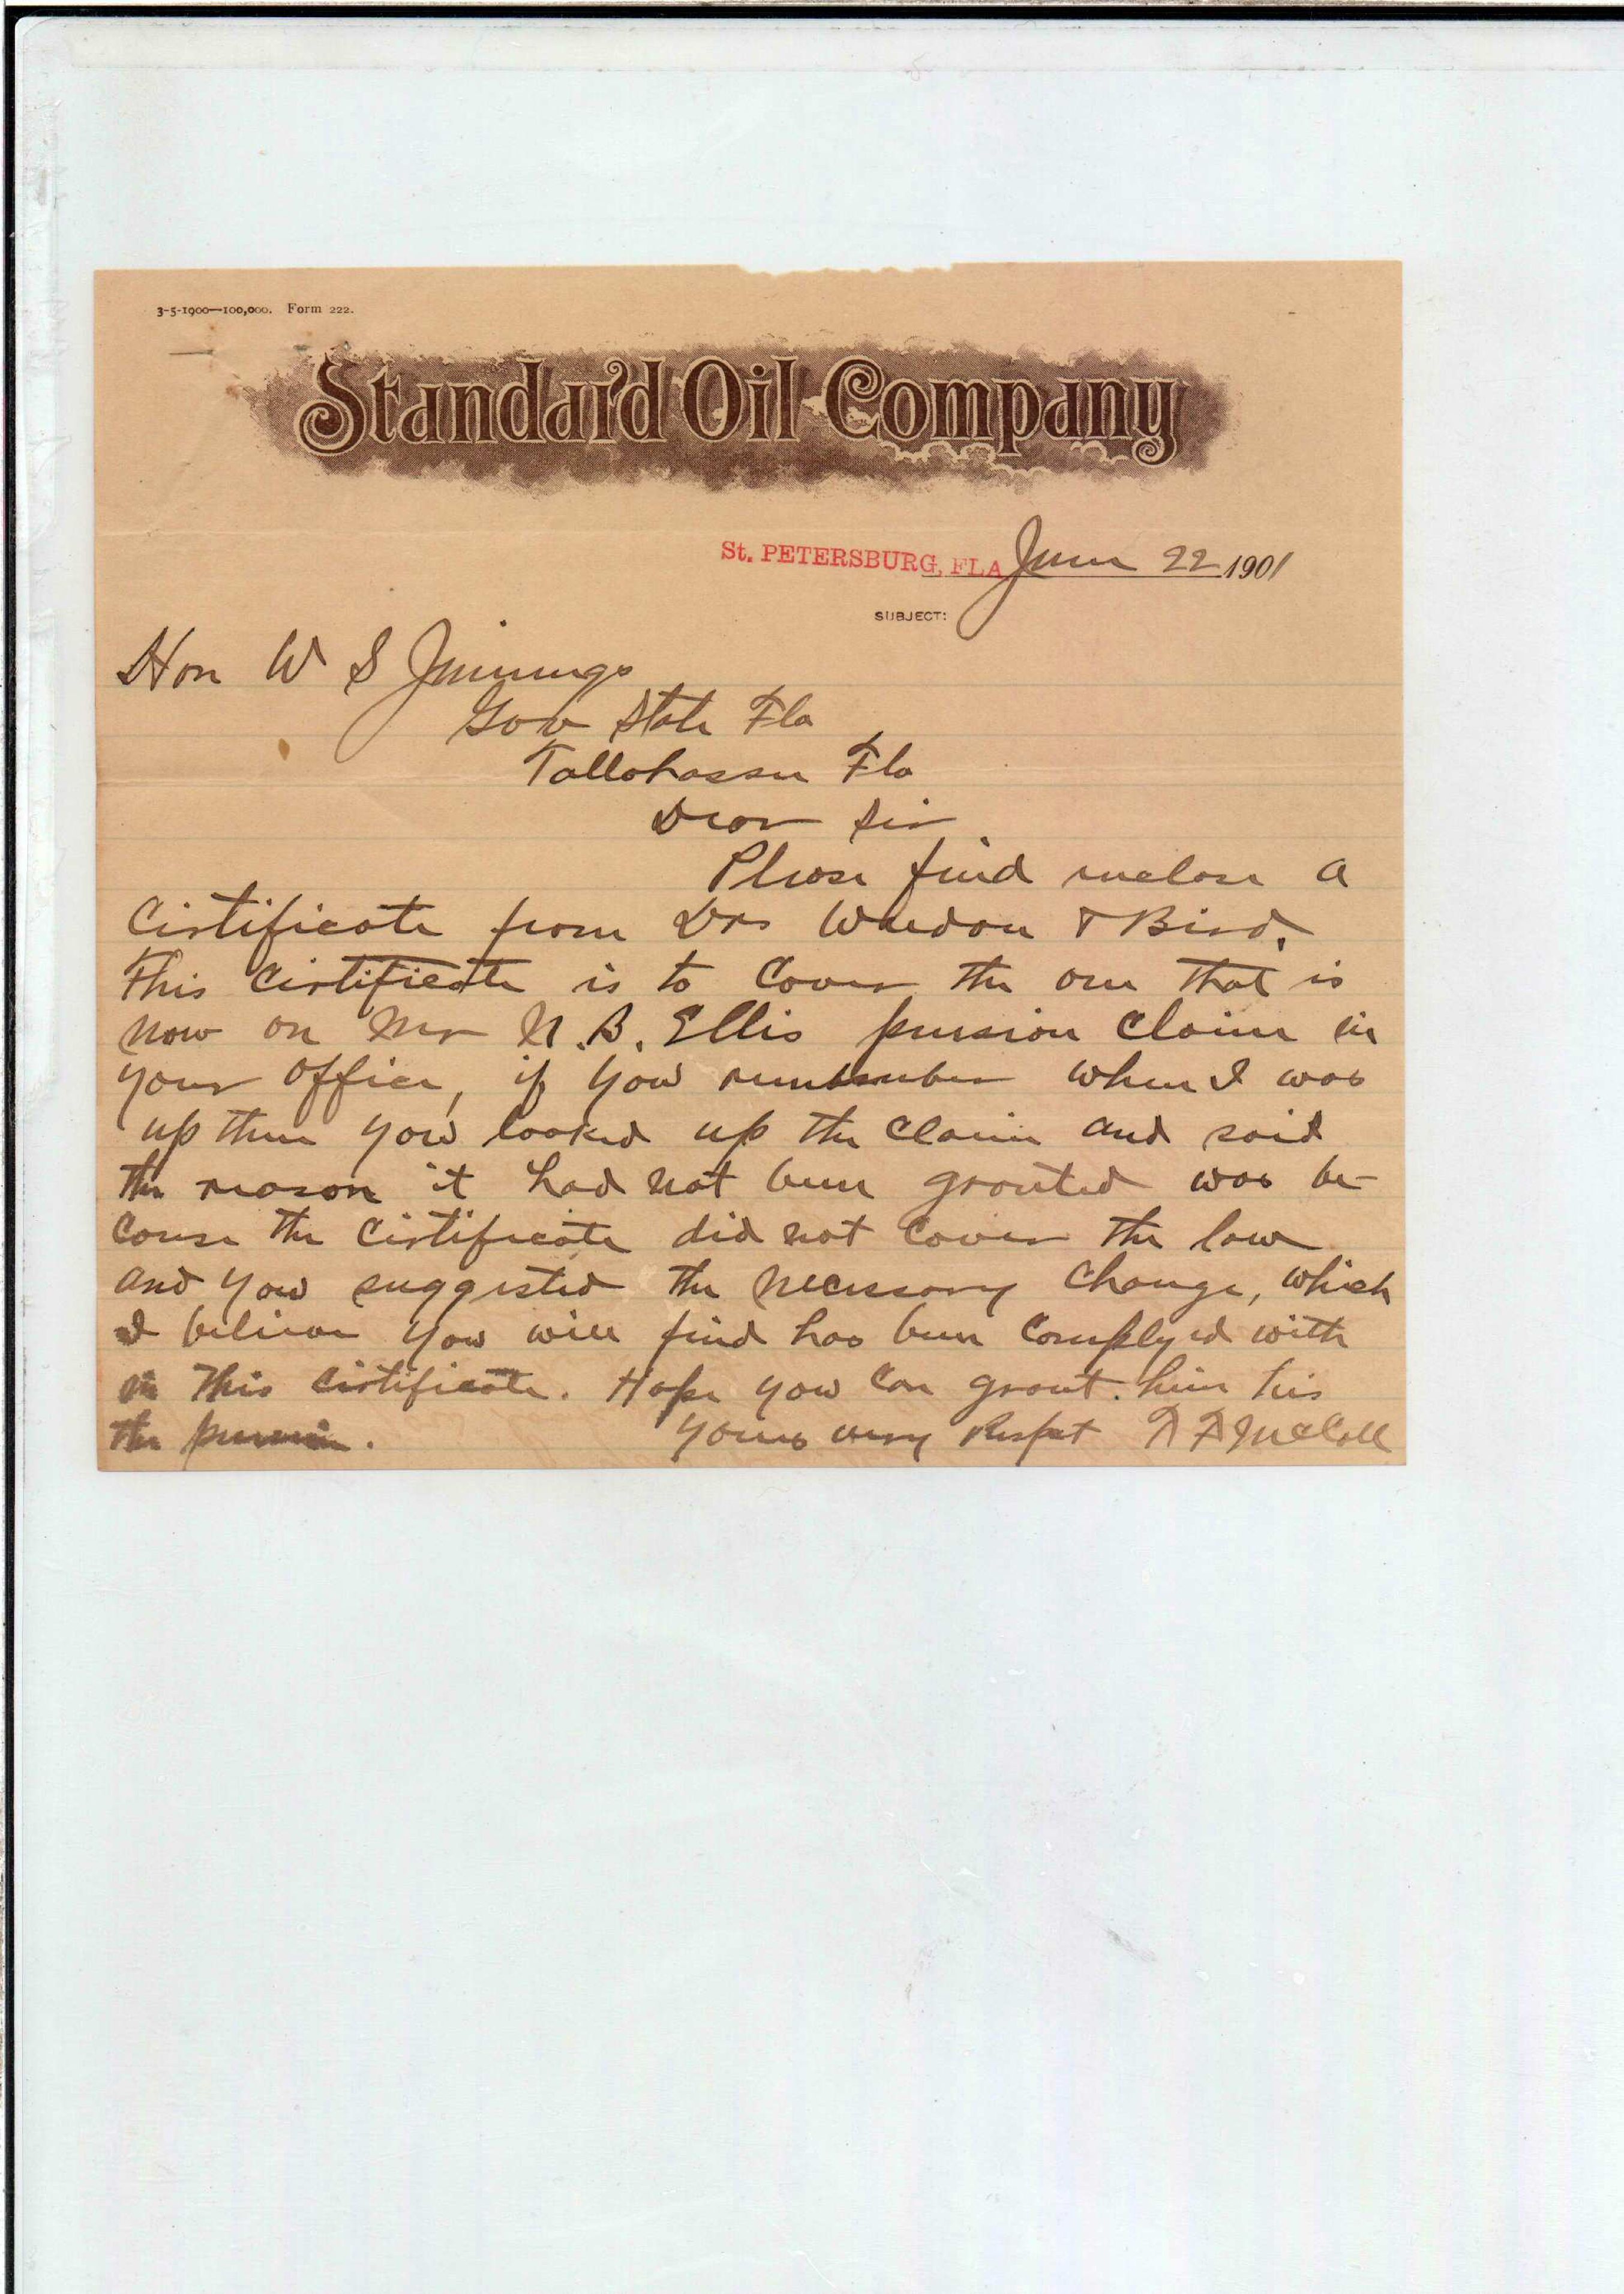 3-5-1900—100,000. Form 222.
Standard Oil Company
St. PETERSBURG, FLA June 22 1901
SUBJECT:
Hon W S Jennings
Gov State Fla
Tallahassee Fla
Dear Sir
Please find enclose a
Certificate from Drs Wheedon & Bird.
This Certificate is to Cover the one that is
now on Mr N. B. Ellis pension Claim in
your office, if you remember when I was
up there you looked up the claim and said
the reason it had not been granted was be-
cause the Certificate did not Cover the law
and you suggested the necessary change, which
I believe you will find has been Complyed with
in This Certificate. Hope you Can grant him his
the pension. Yours very Respt F F McCall